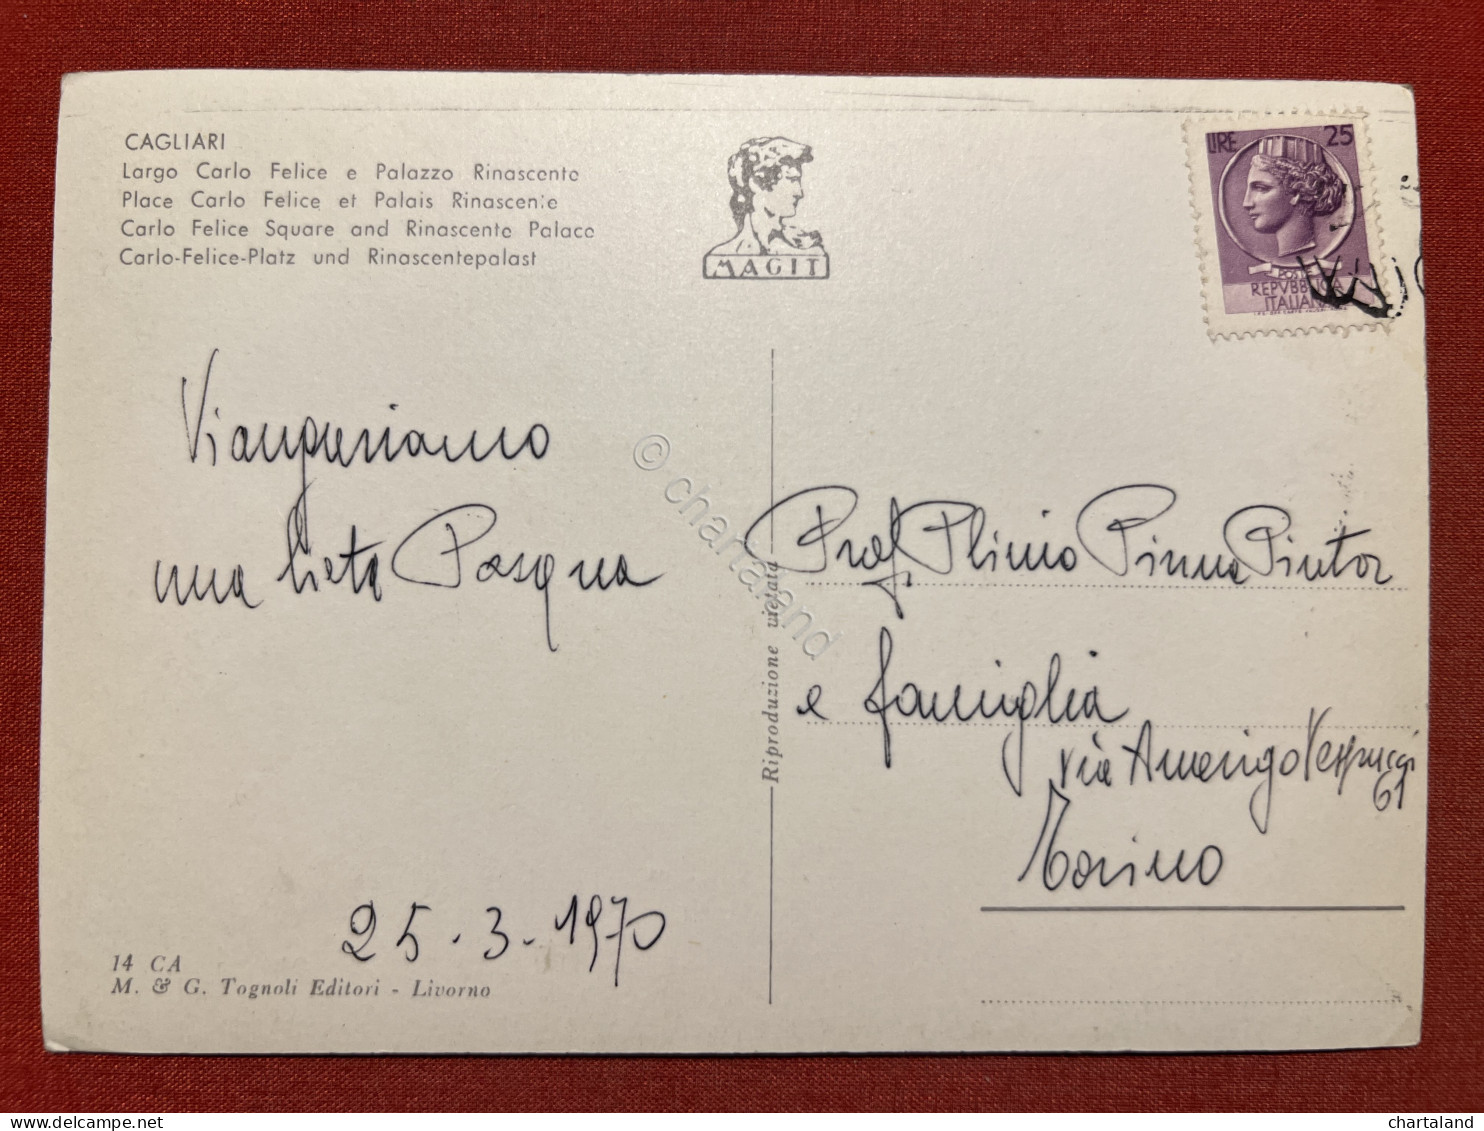 CAGLIARI
Largo Carlo Felice e Palazzo Rinascente
Place Carlo Felice et Palais Rinascente
Carlo Felice Square and Rinascente Palace
Carlo-Felice-Platz und Rinascentepalast
MAGIT
LIRE 25
POSTE
REPVBBLICA
ITALIANA
Vi auguriamo
una lieta Pasqua
25.3.1970
14 CA
M. & G. Tognoli Editori - Livorno
Riproduzione vietata
Prof. Plinio Pinna Pintor
e famiglia
via Amerigo Vespucci
61
Torino
© chartaland
chartaland